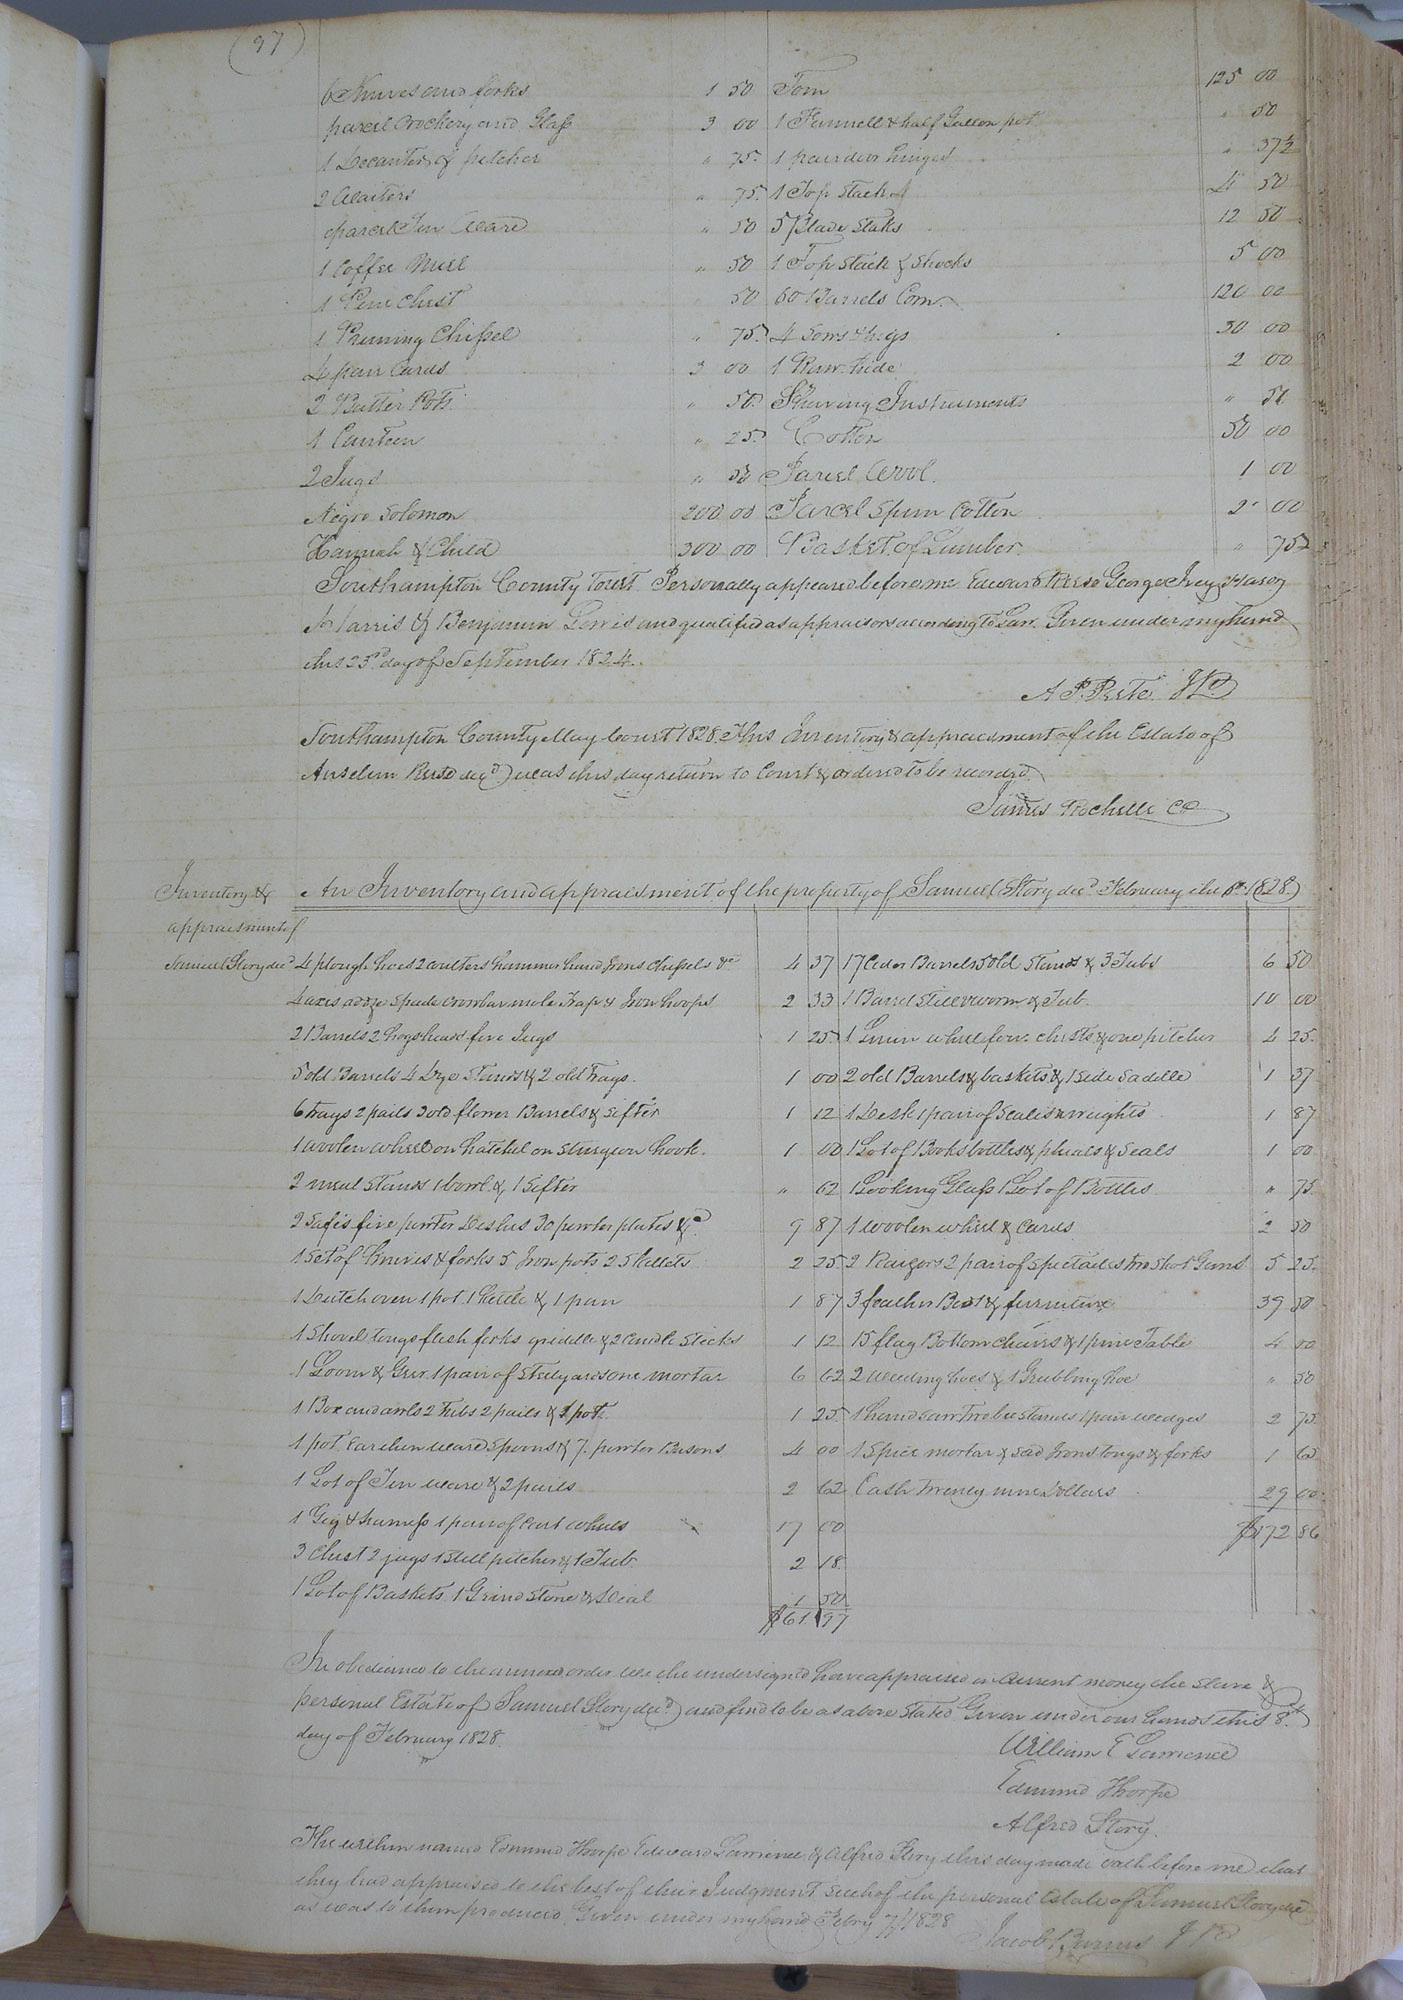 97
6 Knives and forks 1 50 Tom 125 00
parcel Crockery and Glass 3 00 1 Funnell & half Gallon pot " 50
1 Decanter & pitcher " 75 1 pair door hinges " 37½
2 Waiters " 75 1 Top Stack 4 50
parcel Tin Ware " 50 5 Blade Staks 12 50
1 Coffee Mill " 50 1 Top Stack & Shocks 5 00
1 Pine Chest 50 60 Barrels Corn 120 00
1 Pruning Chissel " 75 4 Sows & pigs 30 00
4 pair Cards 3 00 1 Raw hide 2 00
2 Butter Pots " 50 Shaving Instruments " 50
1 Canteen " 25 Cotton 50 00
2 Jugs " 50 Parcel Wool 1 00
Negro Solomon 200 00 Parcel Spun Cotton 2 00
Hannah & Child 300 00 Basket of Lumber " 75
Southampton County Towit Personally appeared before me Edward George Ivey Mason
Harris & Benjamin Lewis and qualified as appraisors according to Law. Given under my hand
this 23rd day of September 1824.
A. P. JP
Southampton County May Court 1828 This Inventory & appraisment of the Estate of
Anselm decd was this day return to Court & ordered to be recorded
James Rochelle CC
Inventory & An Inventory and appraisment of the property of Samuel Story decd February the 1828
appraisment of
Samuel Story decd 4 plough hoes 2 coulters hammer hand Irons chissels &c 4 37 17 Cider Barrels 5 old Stands & 3 Tubs 6 50
4 axes adze Spade crowbar mole Trap & Iron hoops 2 33 1 Barrel Still worm & Tub 10 00
2 Barrels 2 hogsheads five Jugs 1 25 1 Linen wheel four chests & one pitcher 4 25
5 old Barrels 4 Dye Stands & 2 old Trays 1 00 2 old Barrels & baskets & 1 side Saddle 1 37
6 trays 2 pails 3 old flower Barrels & Sifter 1 12 1 Desk 1 pair of Scales & weights 1 87
1 woolen wheel on hatchel on Sturgeon hook 1 00 1 Lot of Books bottles & phials & Seals 1 00
2 meal Stands 1 bowl & 1 Sifter " 62 1 Looking Glass 1 Lot of Bottles " 75
2 Safes five pewter Dishes 30 pewter plates &c 9 87 1 woolen wheel & Cards 2 50
1 Set of Knives & forks 5 Iron pots 2 Skillets 2 25 2 Raizors 2 pair of Spectacles two Shot Guns 5 25
1 Dutch oven 1 pot 1 Kettle & 1 pan 1 87 3 feather Beds & furniture 39 50
1 Shovel tongs flesh forks griddle & 2 Candle Sticks 1 12 15 flag Bottom chairs & 1 pine Table 4 00
1 Loom & Gear 1 pair of Stillyards one mortar 6 62 2 weeding hoes & 1 Grubbing hoe " 50
1 Box and awls 2 Tubs 2 pails & 1 pot 1 25 1 hand saw Two bee stands 1 pair wedges 2 75
1 pot Earthen ware Spoons & 7 pewter Basons 4 00 1 Spice mortar & Sad Irons tongs & forks 1 62
1 Lot of Tin ware & 2 pails 2 62 Cash Twenty nine Dollars 29 00
1 Gig & harness 1 pair of Cart wheels 17 00 $172 86
3 Chest 2 jugs 1 pitcher & 1 Tub 2 18
1 Lot of Baskets 1 Grind Stone & 1 Dial 1 50
$61 97
In obedience to the annexed order we the undersigned have appraised in Current money the Slave &
personal Estate of Samuel Story decd and find to be as above Stated Given under our hands this 8th
day of February 1828
William E Lawrence
Edmund Thorpe
Alfred Story
The within named Edmund Thorpe Edward Lawrence & Alfred Story this day made oath before me that
they had appraised to the best of their Judgment Such of the personal Estate of Samuel Story decd
as was to them produced Given under my hand Febry 7th 1828
Jacob Barnes JP